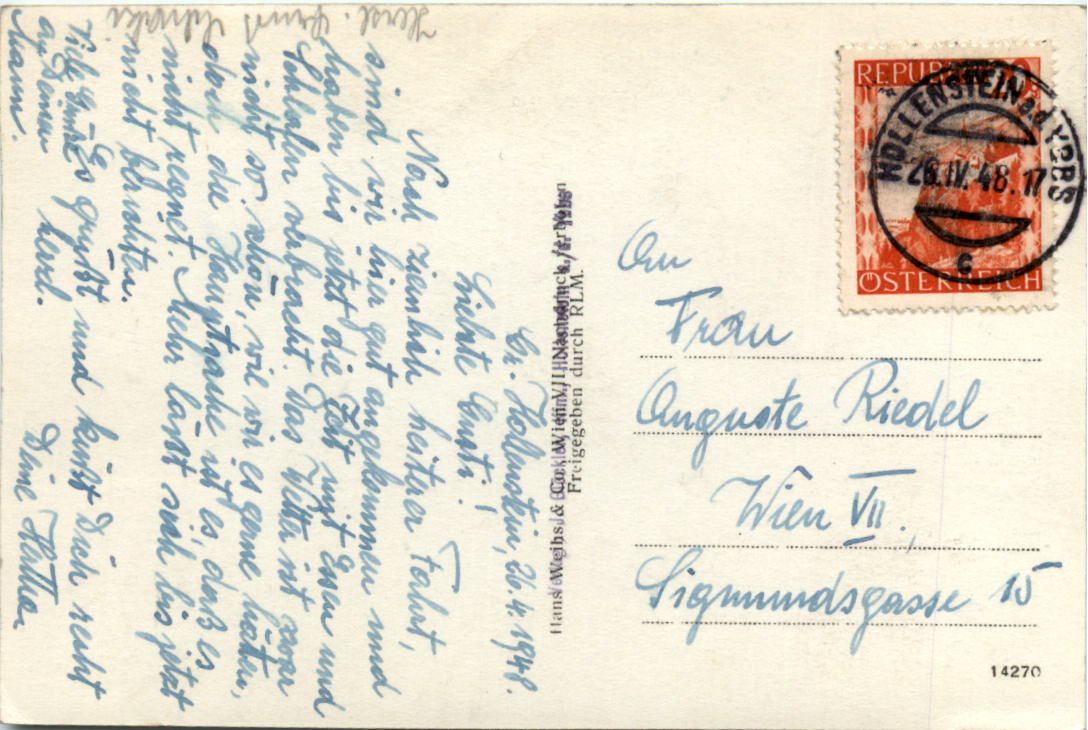 Gr. Hollenstein, 26.4.1948.
Liebste Gusti!
Nach ziemlich heiterer Fahrt,
sind wir hier gut angekommen und
haben bis jetzt die Zeit mit Essen und
Schlafen verbracht. Das Wetter ist zwar
nicht so schön, wie wir es gerne hätten,
doch die Hauptsache ist es, daß es
nicht regnet. Mehr lässt sich bis jetzt
nicht berichten.
Es grüßt und küsst Dich recht
herzl. Deine Hertha
Viele Grüße
an Deinen
Mann.
Herzl.
Hans Weihs & Co., Wien VII Nachdruck verboten
Freigegeben durch RLM.
REPUBLIK
ÖSTERREICH
HOLLENSTEIN a.d. YBBS
26.IV.48.17
c
An
Frau
Auguste Riedel
Wien VII.
Sigmundsgasse 15
14270